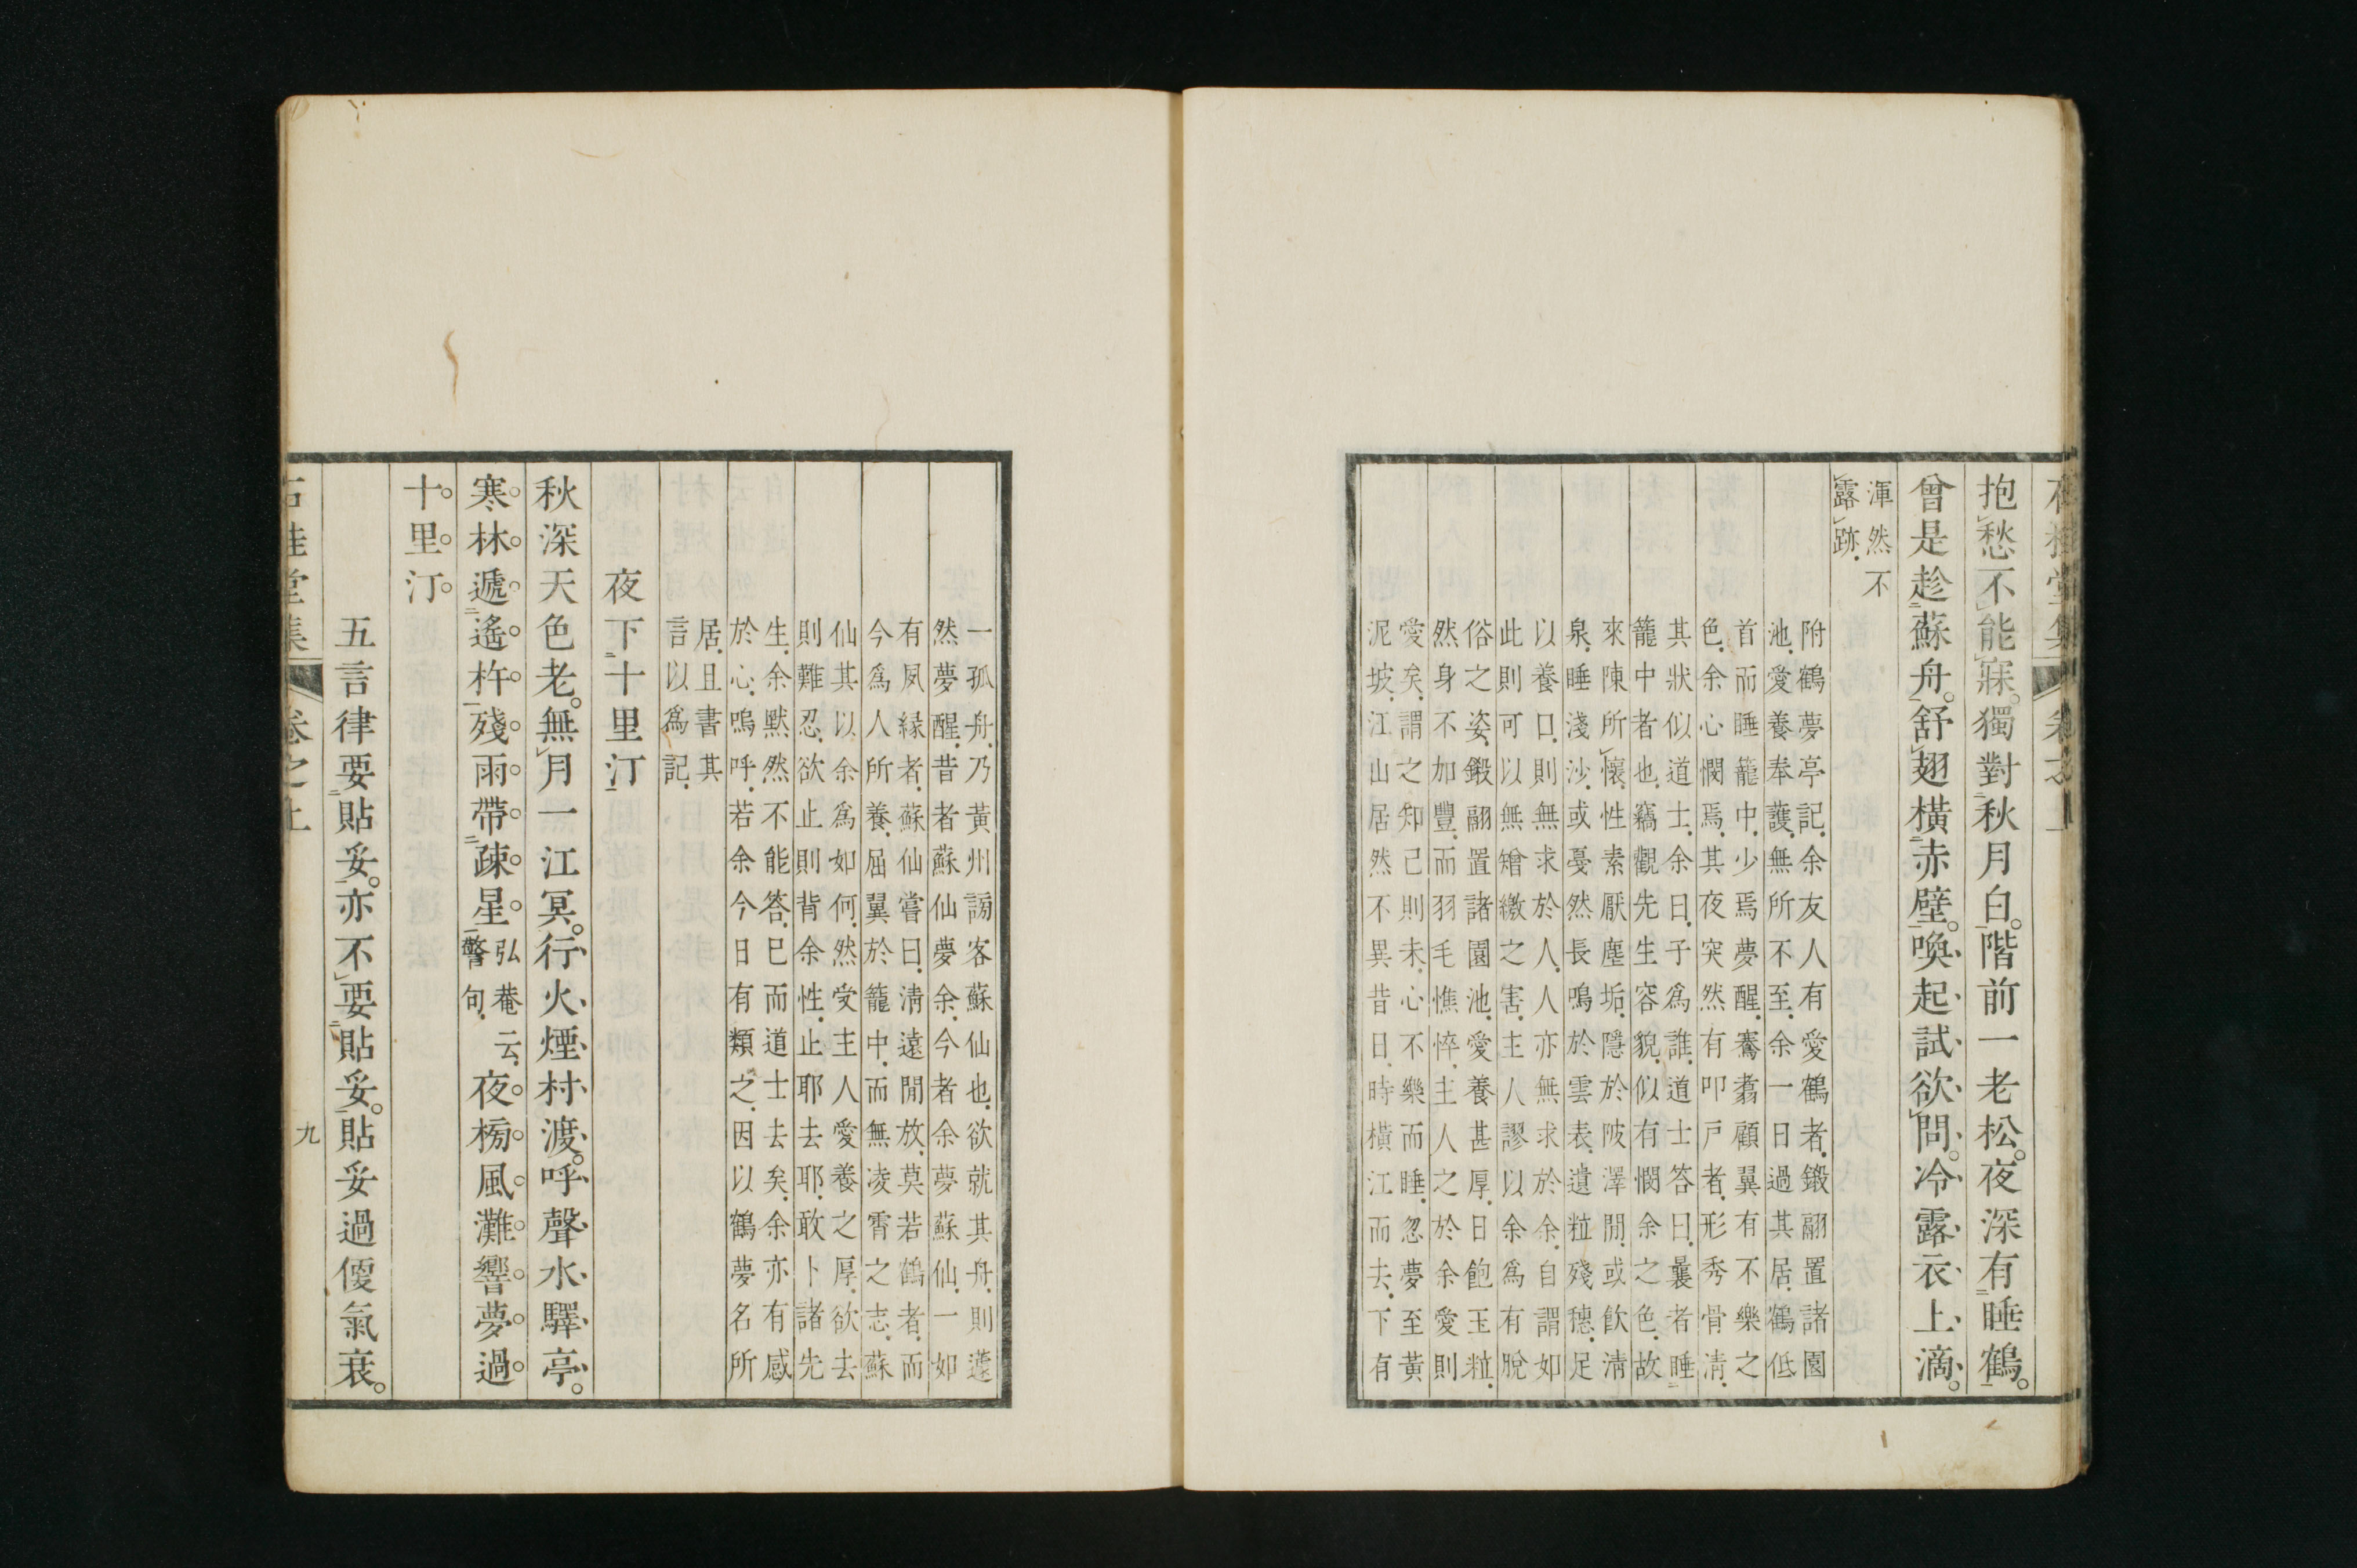 石桂堂集 卷之上
抱愁不能寐。獨對秋月白。階前一老松。夜深有睡鶴。
曾是趁蘇舟。舒翅橫赤壁。喚起試欲問。冷露衣上滴。
渾然不
露跡.
附鶴夢亭記.余友人有愛鶴者.鎩翮置諸園
池.愛養奉護.無所不至.余一日過其居.鶴低
首而睡籠中.少焉夢醒.騫翥顧翼有不樂之
色.余心憫焉.其夜突然有叩戶者.形秀骨清.
其狀似道士.余曰.子爲誰.道士答曰.曩者睡
籠中者也.竊觀先生容貌.似有憫余之色.故
來陳所懷.性素厭塵垢.隱於陂澤閒.或飮清
泉.睡淺沙.或戞然長鳴於雲表.遺粒殘穗.足
以養口.則無求於人.人亦無求於余.自謂如
此則可以無矰繳之害.主人謬以余爲有脫
俗之姿.鎩翮置諸園池.愛養甚厚.日飽玉粒.
然身不加豐.而羽毛憔悴.主人之於余愛則
愛矣.謂之知己則未.心不樂而睡.忽夢至黃
泥坡.江山居然不異昔日.時橫江而去.下有
一孤舟.乃黃州謫客蘇仙也.欲就其舟.則蘧
然夢醒.昔者蘇仙夢余.今者余夢蘇仙.一如
有夙緣者.蘇仙嘗曰.淸遠閒放.莫若鶴者.而
今爲人所養.屈翼於籠中.而無凌霄之志.蘇
仙其以余爲如何.然受主人愛養之厚.欲去
則難忍.欲止則背余性.止耶去耶.敢卜諸先
生.余默然不能答.已而道士去矣.余亦有感
於心.嗚呼.若余今日有類之.因以鶴夢名所
居.且書其
言以爲記.
夜下十里汀
秋深天色老。無月一江冥。行火煙村渡。呼聲水驛亭。
寒林遞遙杵。殘雨帶疎星。弘菴云.警句.夜榜風灘響夢過
十里汀。
五言律要貼妥。亦不要貼妥。貼妥過便氣衰。
石桂堂集 卷之上 九